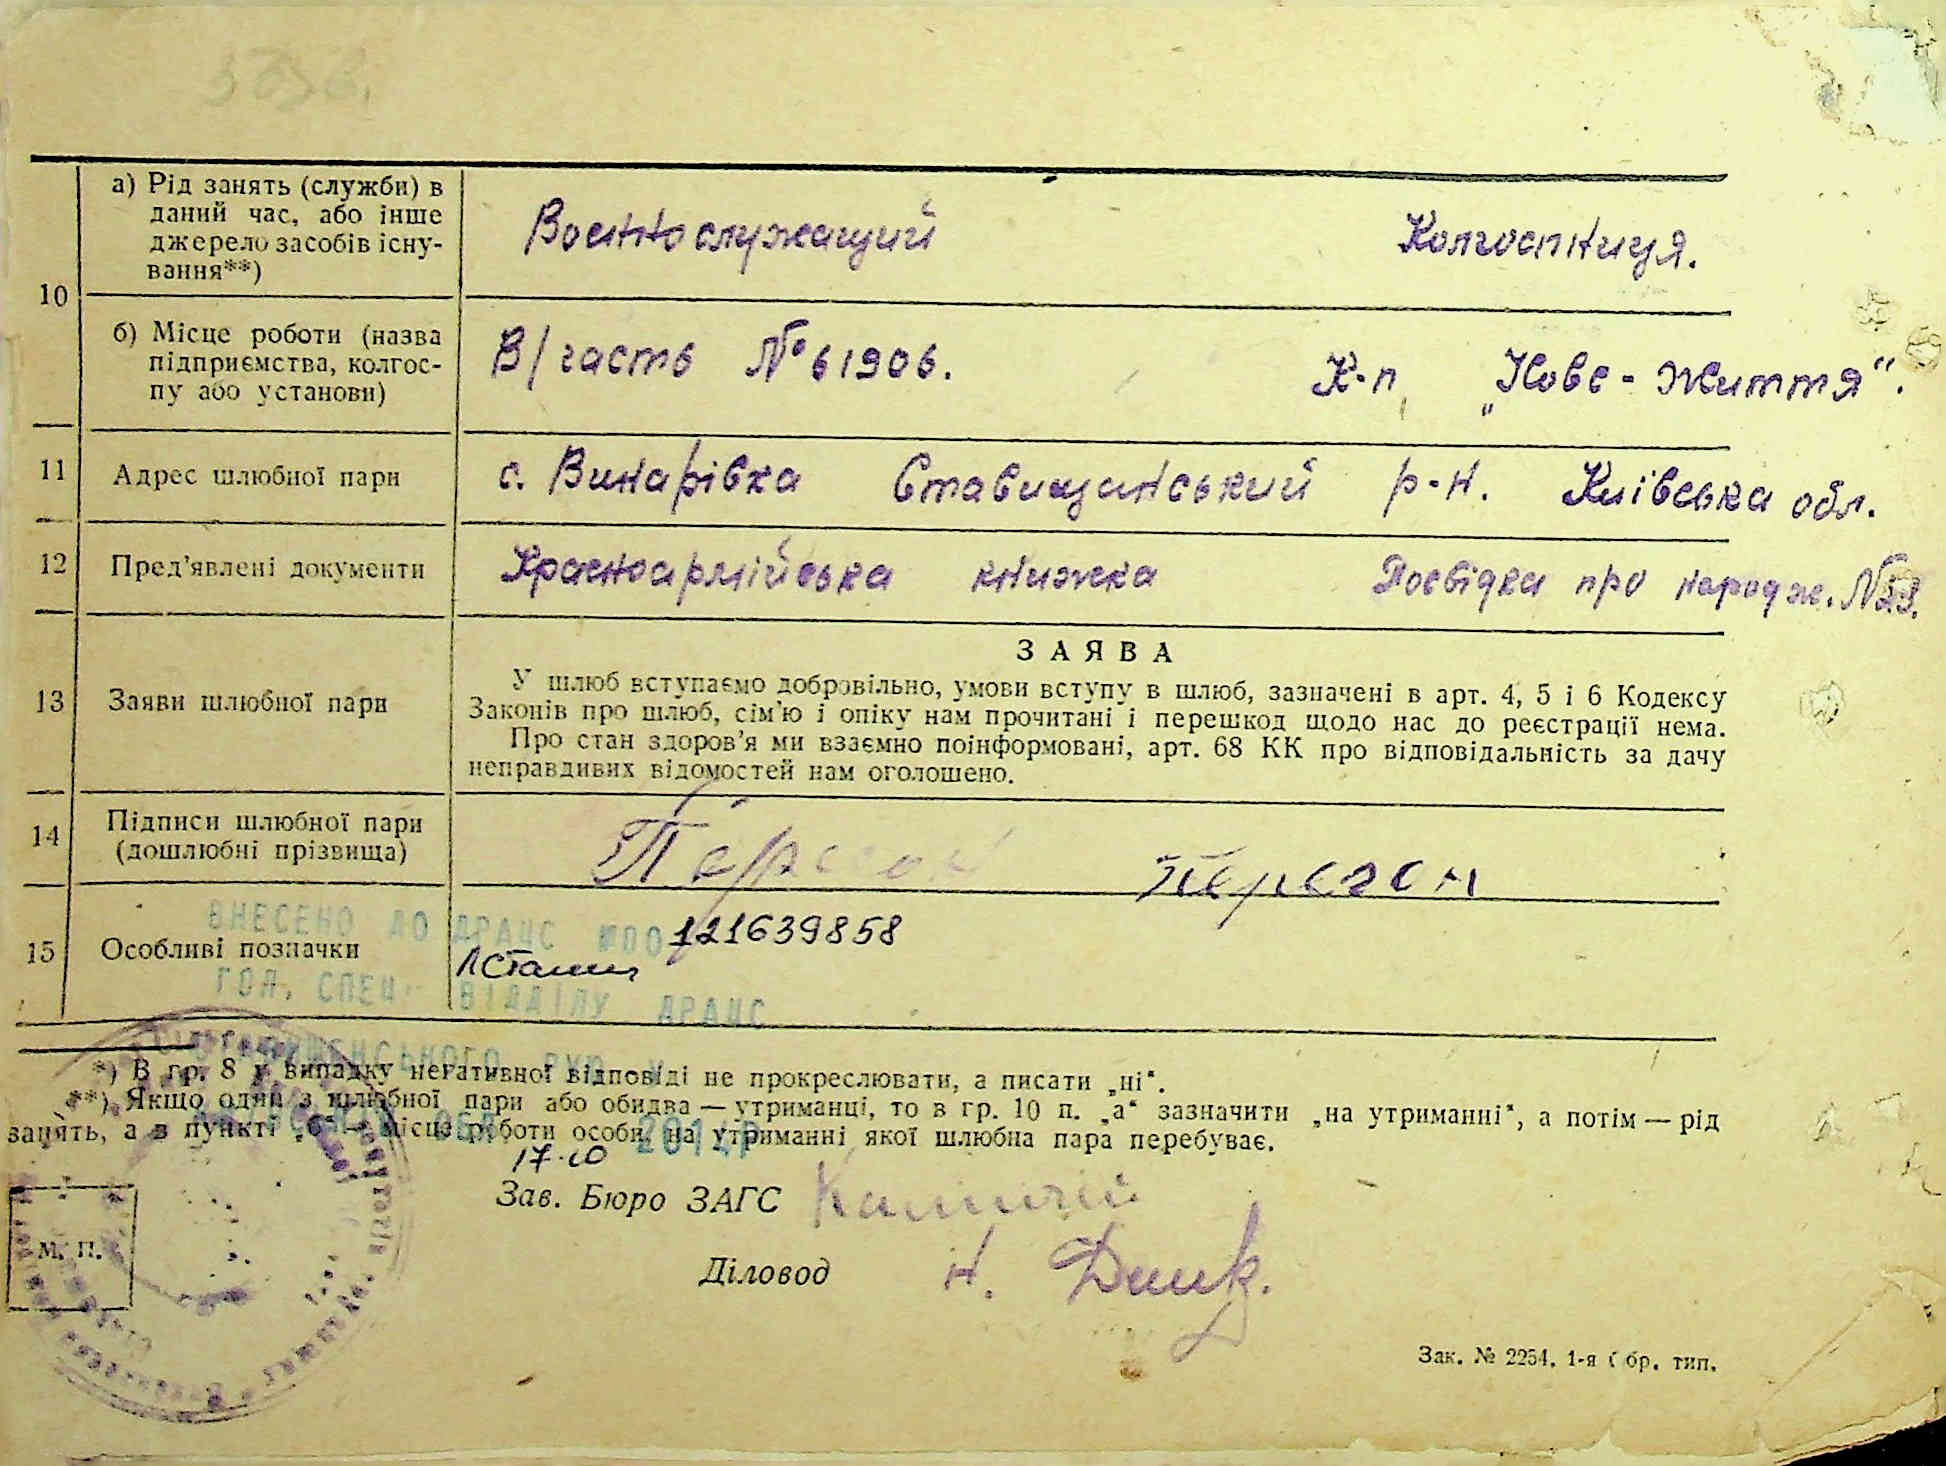 10
а) Рід занять (служби) в
даний час, або інше
джерело засобів існу-
вання**)
Военнослужащий Колгоспниця.
б) Місце роботи (назва
підприємства, колгос-
пу або установи)
В/часть № 61906. К-п „Нове - Життя".
11 Адрес шлюбної пари с. Винарівка Ставищанський р-н. Київська обл.
12 Пред'явлені документи Красноармійська книжка Посвідка про народж. №
13 Заяви шлюбної пари
ЗАЯВА
У шлюб вступаємо добровільно, умови вступу в шлюб, зазначені в арт. 4, 5 і 6 Кодексу
Законів про шлюб, сім'ю і опіку нам прочитані і перешкод щодо нас до реєстрації нема.
Про стан здоров'я ми взаємно поінформовані, арт. 68 КК про відповідальність за дачу
неправдивих відомостей нам оголошено.
14 Підписи шлюбної пари
(дошлюбні прізвища)
15 Особливі позначки
ВНЕСЕНО ДО ДРАЦС 121639858
ГОЛ. СПЕЦ. ВІДДІЛУ ДРАЦС
*) В гр. 8 у випадку негативної відповіді не прокреслювати, а писати „ні".
**) Якщо один з шлюбної пари або обидва — утриманці, то в гр. 10 п. „а" зазначити „на утриманні", а потім — рід
занять, а в пункті „б" — місце роботи особи, на утриманні якої шлюбна пара перебуває.
17.10
Зав. Бюро ЗАГС
М. П.
Діловод Н.
Зак. № 2254. 1-я бр. тип.